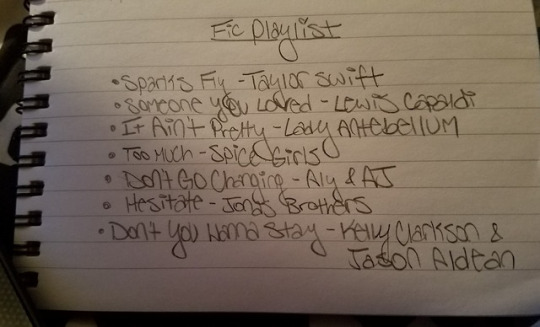 Fic Playlist
• Sparks Fly - Taylor Swift
• Someone you Loved - Lewis Capaldi
• It Ain't Pretty - Lady Antebellum
• Too Much - Spice Girls
• Don't Go Changing - Aly & AJ
• Hesitate - Jonas Brothers
• Don't You Wanna Stay - Kelly Clarkson &
Jason Aldean